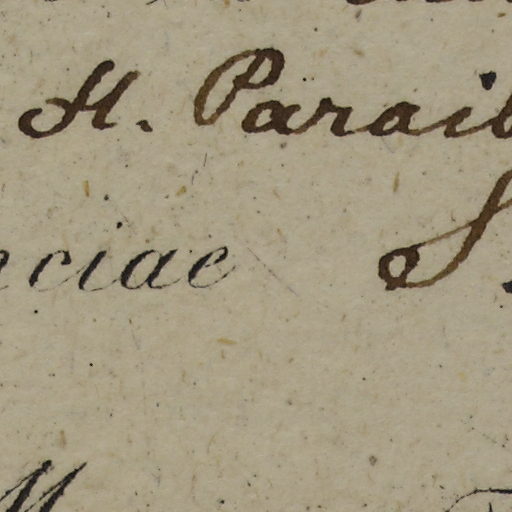 H. Paraib
nciae S
M